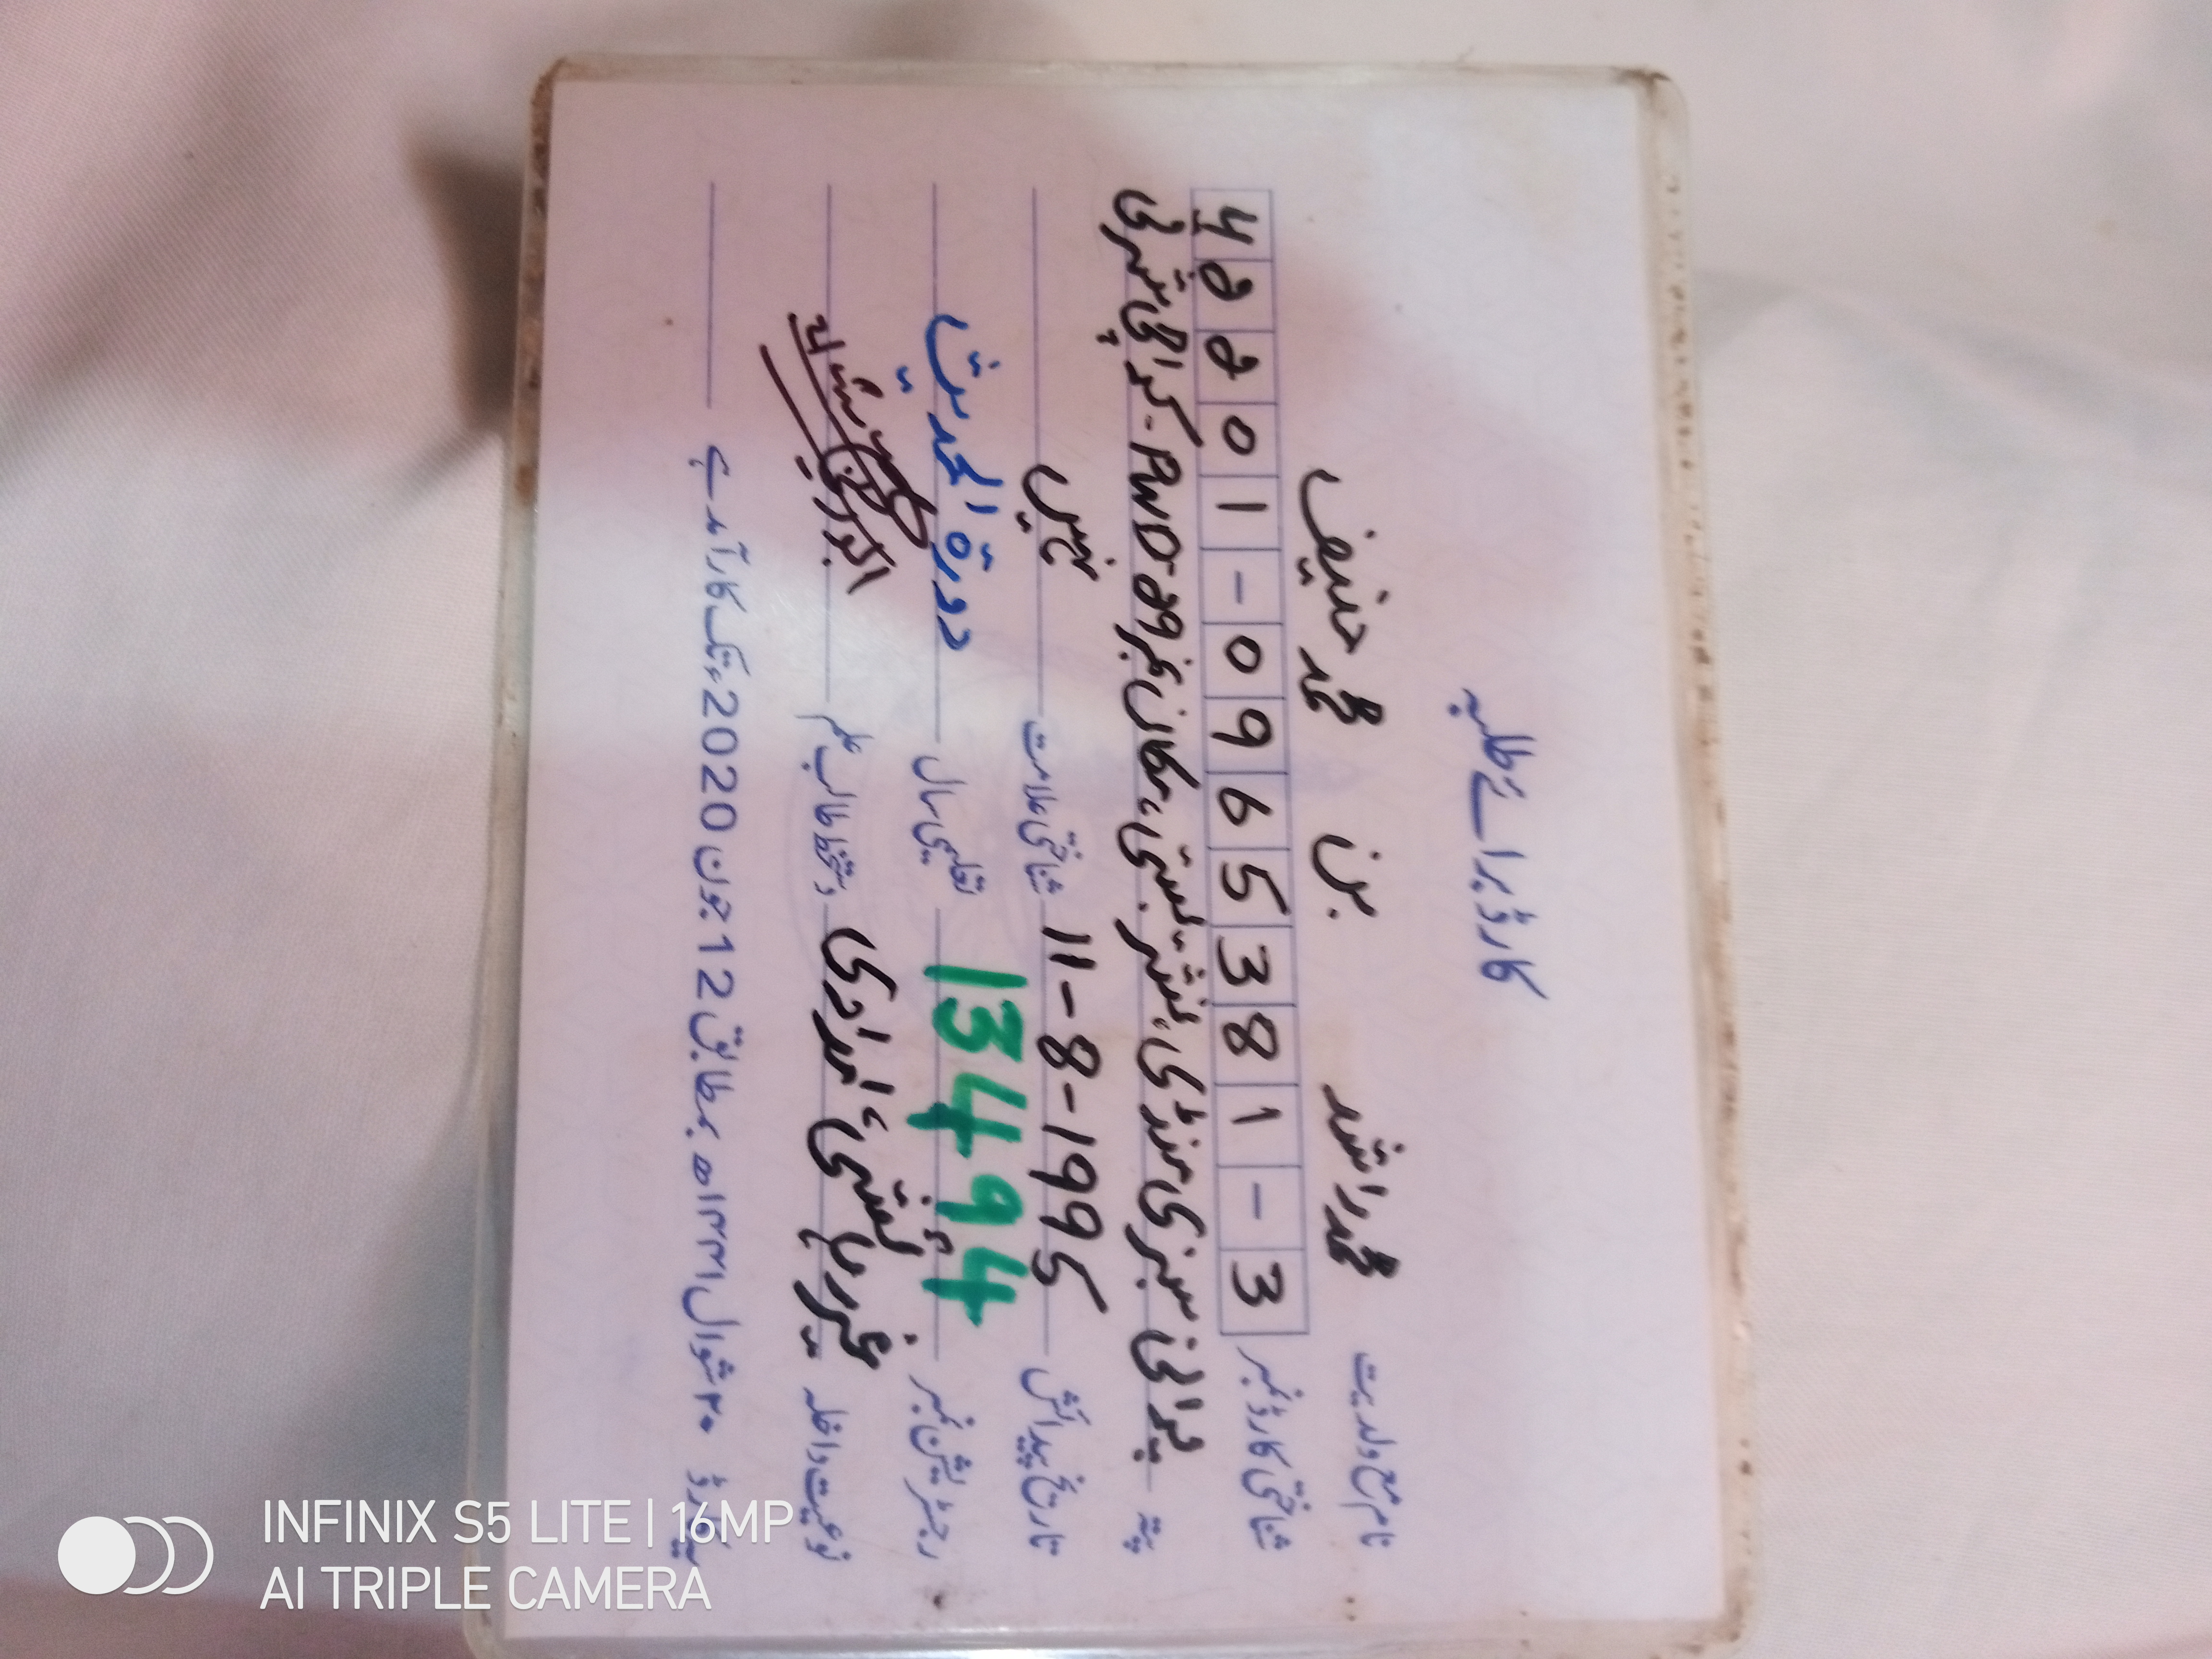 کارڈ برائے طلبہ
نام مع ولدیت محمد راشد بن محمد حنیف
شناختی کارڈ نمبر 42201-0965381-3
پتہ پرانی سبزی منڈی، نشتر بستی، مکان نمبر PWD-29 - کراچی شرقی
تاریخ پیدائش 11-8-1995 شناختی علامت نہیں
رجسٹریشن نمبر 13494 تعلیمی سال دورۃ الحدیث
نوعیت داخلہ غیر رہائشی، امدادی دستخط طالب علم
یہ کارڈ ۲۰ شوال ۱۴۴۱ھ بمطابق 12 جون 2020ء تک کارآمد ہے
INFINIX S5 LITE | 16MP
AI TRIPLE CAMERA